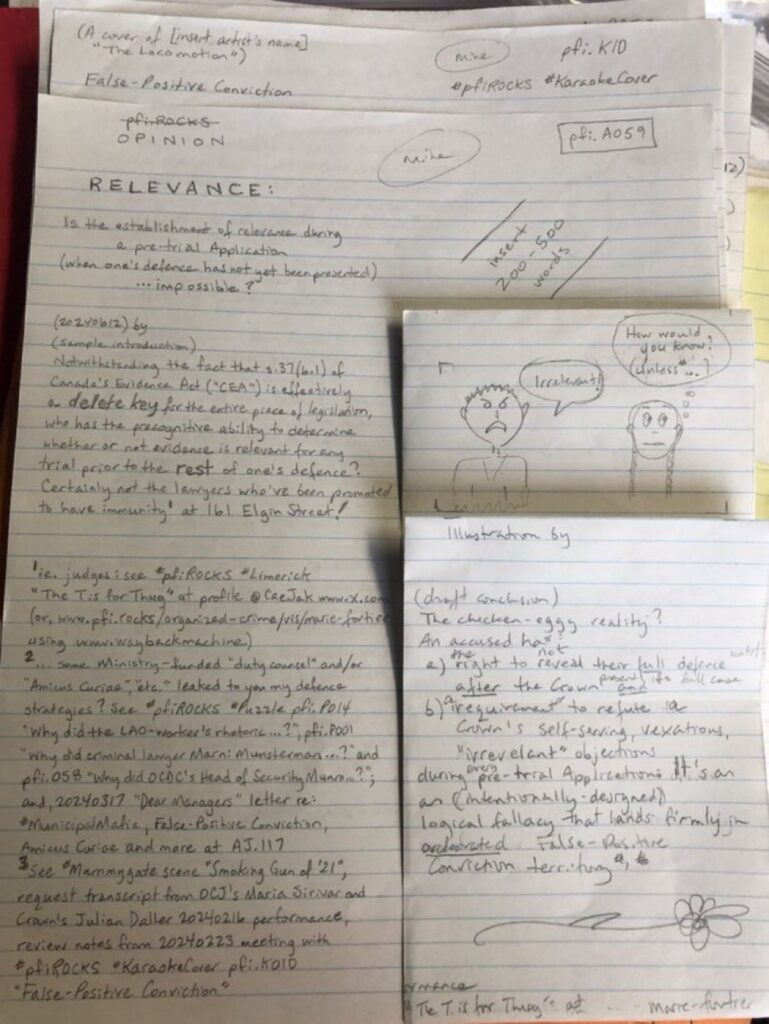 (A cover of [insert artist's name]
"The Locomotion")
Mine
pfi.K1D
False-Positive Conviction
#pfiROCKS #KaraokeCover
pfi.ROCKS
OPINION
Mine
pfi.A059
RELEVANCE:
Is the establishment of relevance during
a pre-trial Application
(when one's defence has not yet been presented)
...impossible?
insert
200-500
words
(20240612) by
(sample introduction)
Notwithstanding the fact that s.37(6.1) of
Canada's Evidence Act ("CEA") is effectively
a delete key for the entire piece of legislation,
who has the precognitive ability to determine
whether or not evidence is relevant for any
trial prior to the rest of one's defence?
Certainly not the lawyers who've been promoted
to have immunity¹ at 161 Elgin Street!
¹ie. judges: see #pfiROCKS #Limerick
"The T is for Thug" at profile @CaeJak www.x.com
(or, www.pfi.rocks/organized-crime/vis/marie-fortier
using www.waybackmachine)
2... some Ministry-funded "duty counsel" and/or
"Amicus Curiae", "etc." leaked to you my defence
strategies? See #pfiROCKS #Puzzle pfi.P014
"Why did the LAO-worker's rhetoric...?", pfi.P001
"Why did criminal lawyer Marni Munsterman...?" and
pfi.058 "Why did OCDC's Head of Security Munro...?";
and, 20240317 "Dear Managers" letter re:
#MunicipalMafia, False-Positive Conviction,
Amicus Curiae and more at AJ.117
3See #Mammygate scene "Smoking Gun of '21",
request transcript from OCJ's Maria Sirivar and
Crown's Julian Daller 20240216 performance,
review notes from 20240223 meeting with
#pfiROCKS #KaraokeCover pfi.K01D
"False-Positive Conviction"
Irrelevant!
How would
you know?
(Unless ...?
Illustration by
(draft conclusion)
The chicken-eggy reality?
An accused has:
a) the right to not reveal their full defence until
after the Crown presents its full case
and
b) a "requirement" to refute a
Crown's self-serving, vexatious,
"irrevelant" objections
during every pre-trial Application. It's an
an (intentionally-designed)
logical fallacy that lands firmly in
orchestrated False-Positive
Conviction territory
rmance
"The T. is for Thug" at .... marie-fortier